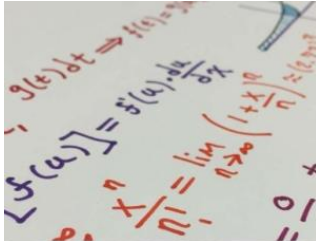 g(t)dt ⇒ f(t)=g
[f(u)] = f'(u)·du/dx
x^n/n! = lim n→∞ (1+x/n)^n ≈ (2,